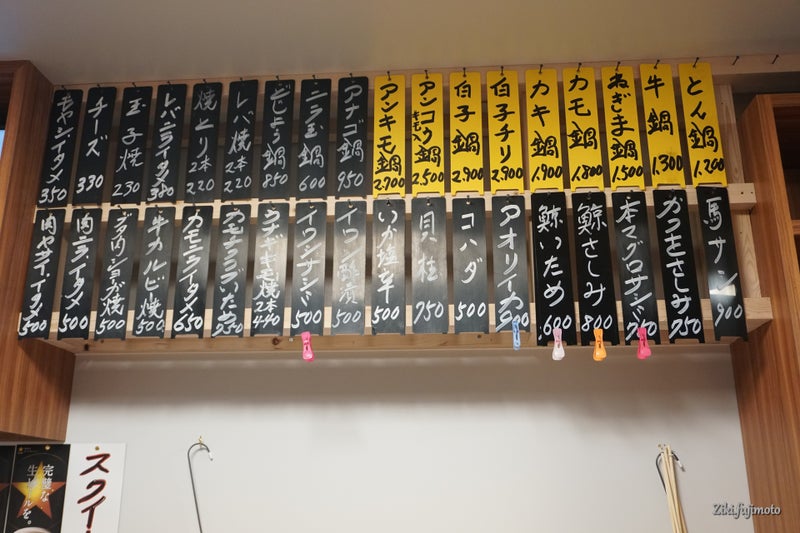 とん鍋 1.200
牛鍋 1.300
ねぎま鍋 1.500
カモ鍋 1.800
カキ鍋 1.900
白子チリ 2.900
白子鍋 2.900
アンコウ鍋 キモ入 2,500
アンキモ鍋 2,700
アナゴ鍋 950
ニラ玉鍋 600
どじょう鍋 850
レバ焼 2本 220
焼とり 2本 220
レバニライタメ 380
玉子焼 230
チーズ 330
モヤシイタメ 350
馬サシ 900
かつをさしみ 750
本マグロサシ 750
鯨さしみ 800
鯨いため 600
アオリイカ 900
コハダ 500
貝柱 750
いか塩辛 500
イワシ酢漬 500
イワシサシミ 500
ウナギキモ焼 2本 440
カモニライタメ 650
牛カルビ焼 500
ブタ肉ショーガ焼 500
肉ニライタメ 500
肉ヤサイイタメ 500
完璧な
生ビールを。
スクイ
Ziki.fujimoto